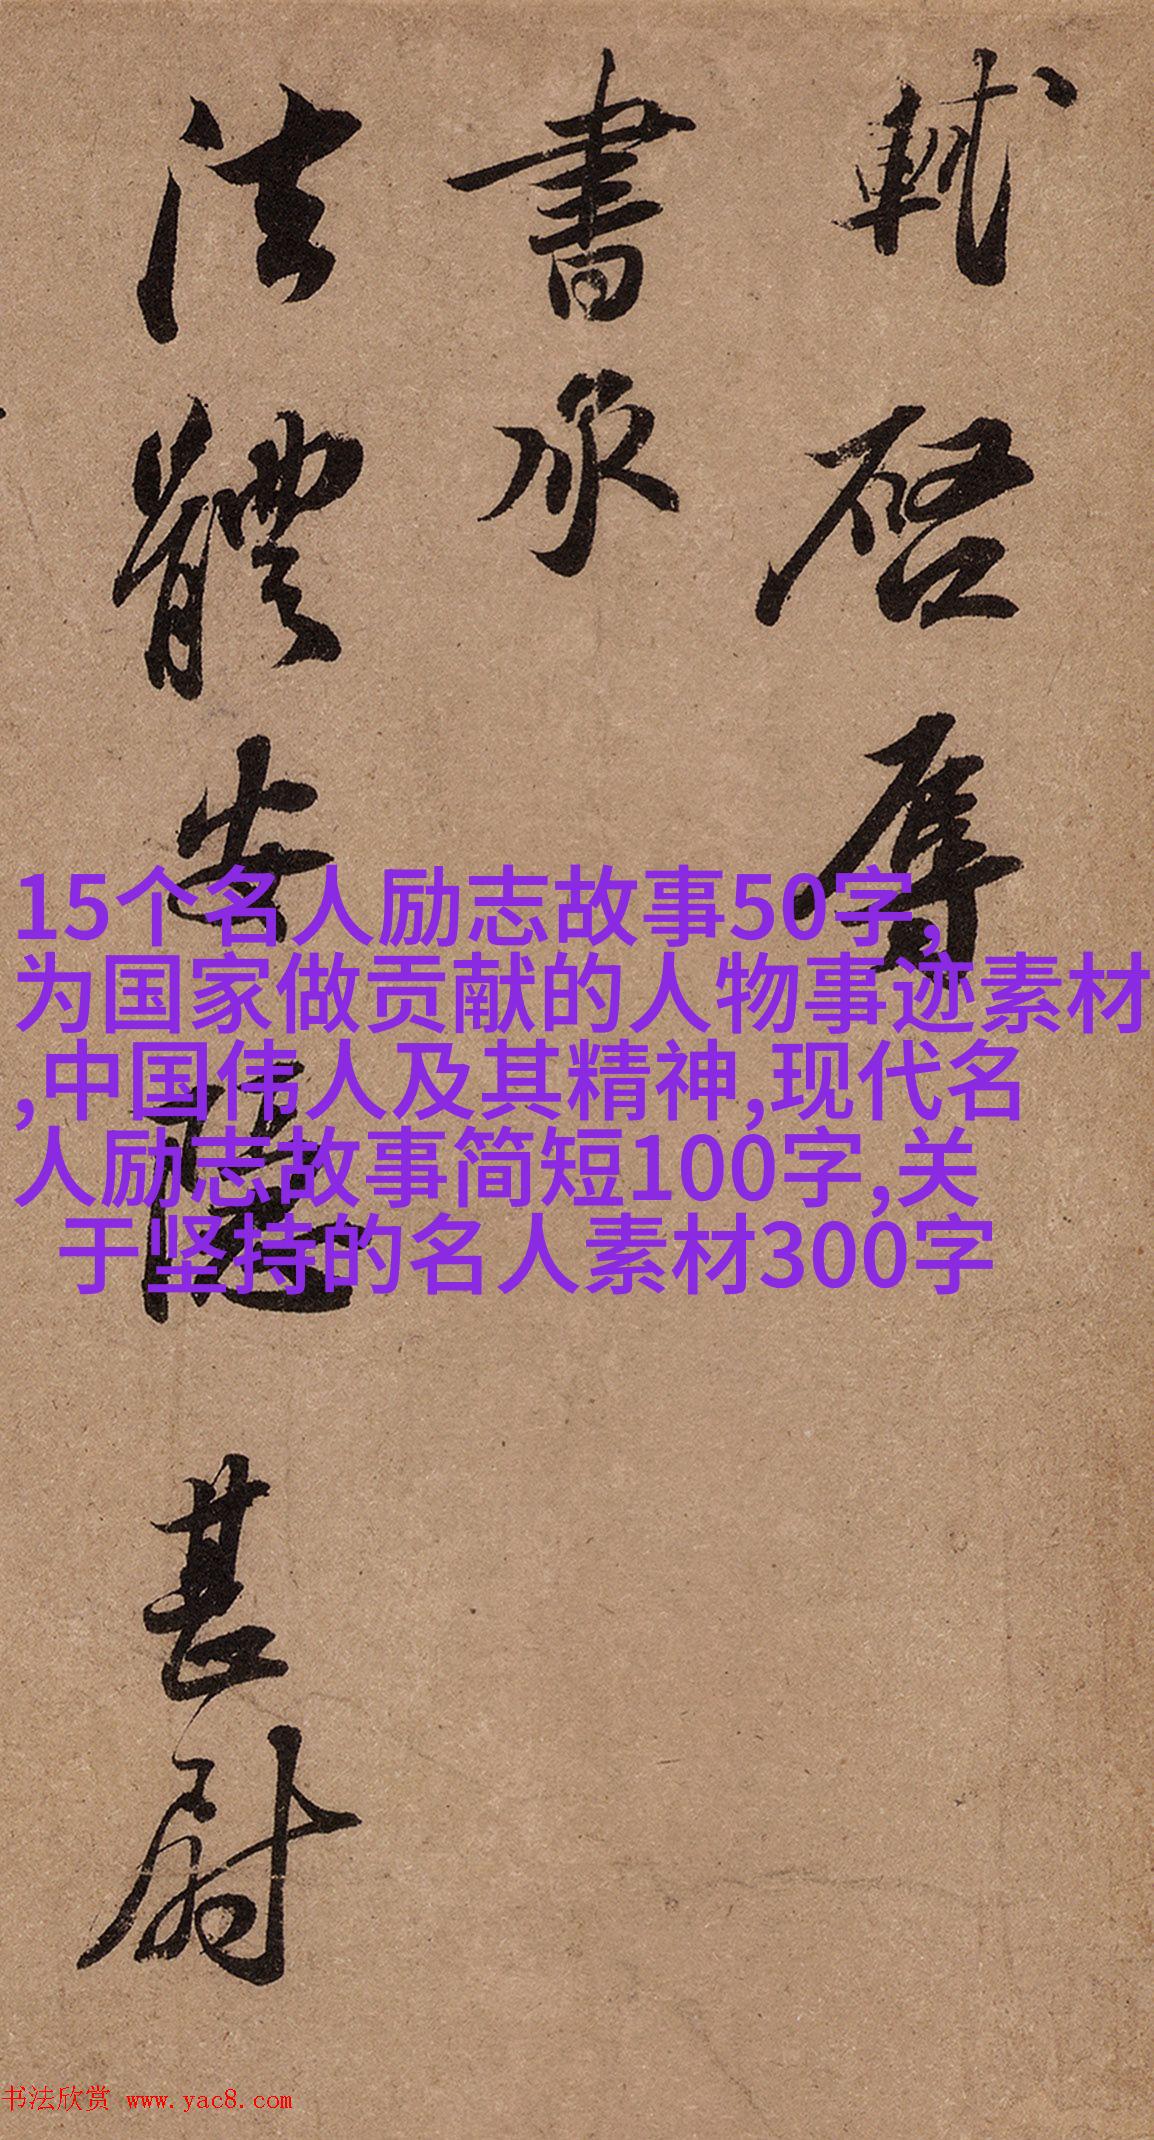 軾啓辱
書承
法體安隱甚慰
15个名人励志故事50字,
为国家做贡献的人物事迹素材
,中国伟人及其精神,现代名
人励志故事简短100字,关
于坚持的名人素材300字
书法欣赏 www.yac8.com